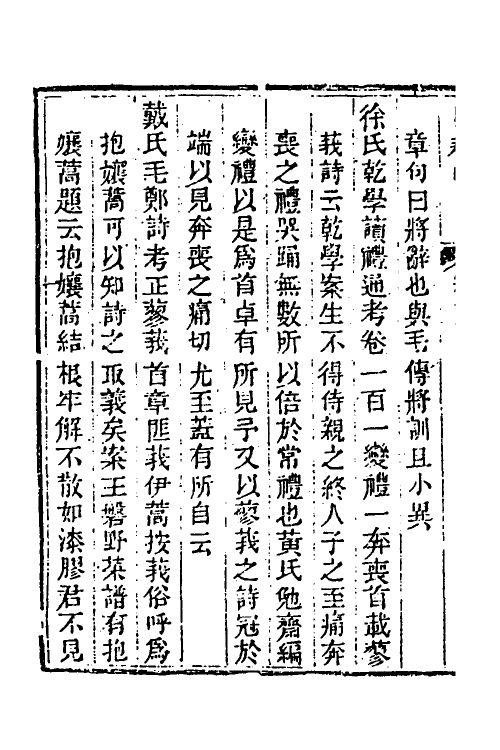 章句曰將辭也與毛傳將訓且小異
徐氏乾學讀禮通考卷一百一變禮一奔喪首載蓼
莪詩云乾學案生不得侍親之終人子之至痛奔
喪之禮哭踊無數所以倍於常禮也黃氏勉齋編
變禮以是爲首卓有所見予又以蓼莪之詩冠於
端以見奔喪之痛切尤至蓋有所自云
戴氏毛鄭詩考正蓼莪首章匪莪伊蒿按莪俗呼爲
抱孃蒿可以知詩之取義矣案王磐野菜譜有抱
孃蒿題云抱孃蒿結根牢解不散如漆膠君不見